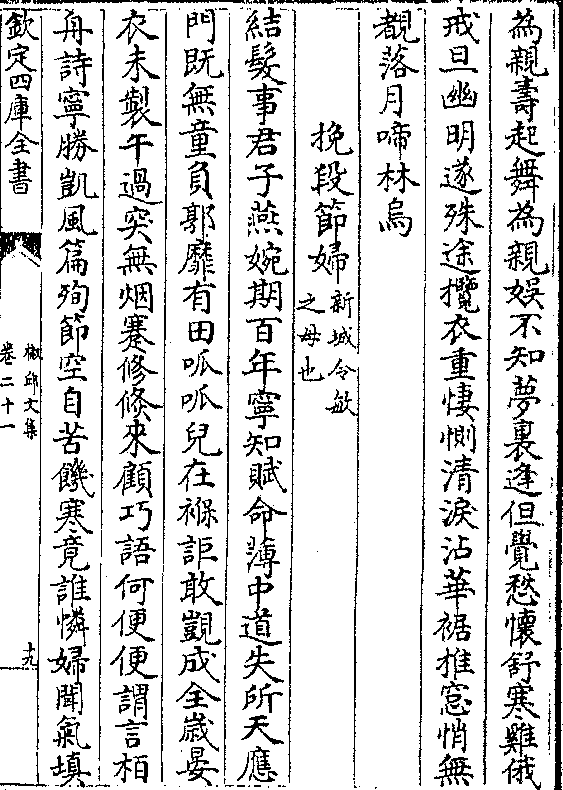 為親壽起舞為親娛不知夢裏逢但覺愁懷舒寒雞俄
戒旦幽明遂殊途攬衣重悽惻清淚沾華裾推窓悄無
覩落月啼林烏
挽段節婦新城令敏
之母也
結髮事君子燕婉期百年寧知賦命薄中道失所天應
門既無童負郭靡有田呱呱兒在褓詎敢覬成全嵗晏
衣未製午過突無烟蹇修倐來顧巧語何便便謂言柏
舟詩寧勝凱風篇殉節空自苦饑寒竟誰憐婦聞氣填
欽定四庫全書
椒邱文集
卷二十一
十九